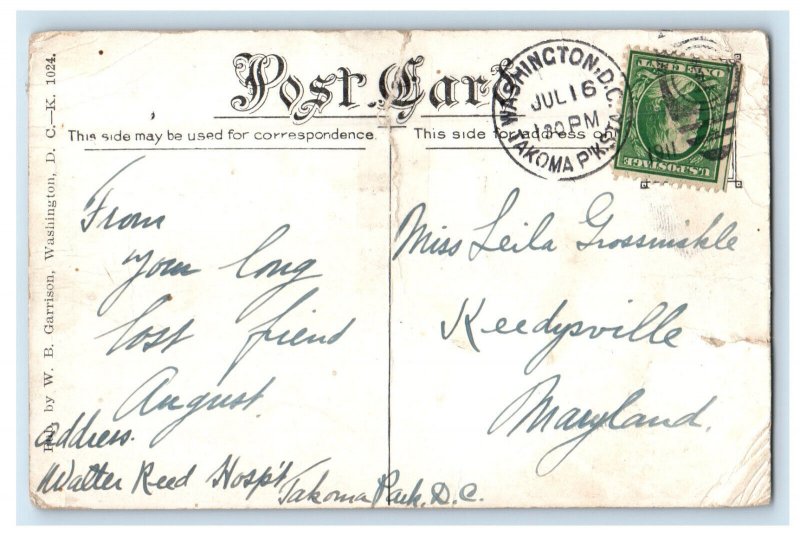 Post Card
This side may be used for correspondence.
This side for address
WASHINGTON, D.C.
JUL 16
1 30 PM
TAKOMA P'K
U.S. POSTAGE
Pub. by W. B. Garrison, Washington, D. C.—K. 1024.
From
Your long
lost friend
August.
address.
Walter Reed Hosp't
Takoma Park, D.C.
Miss Leila Grossnickle
Keedysville
Maryland.